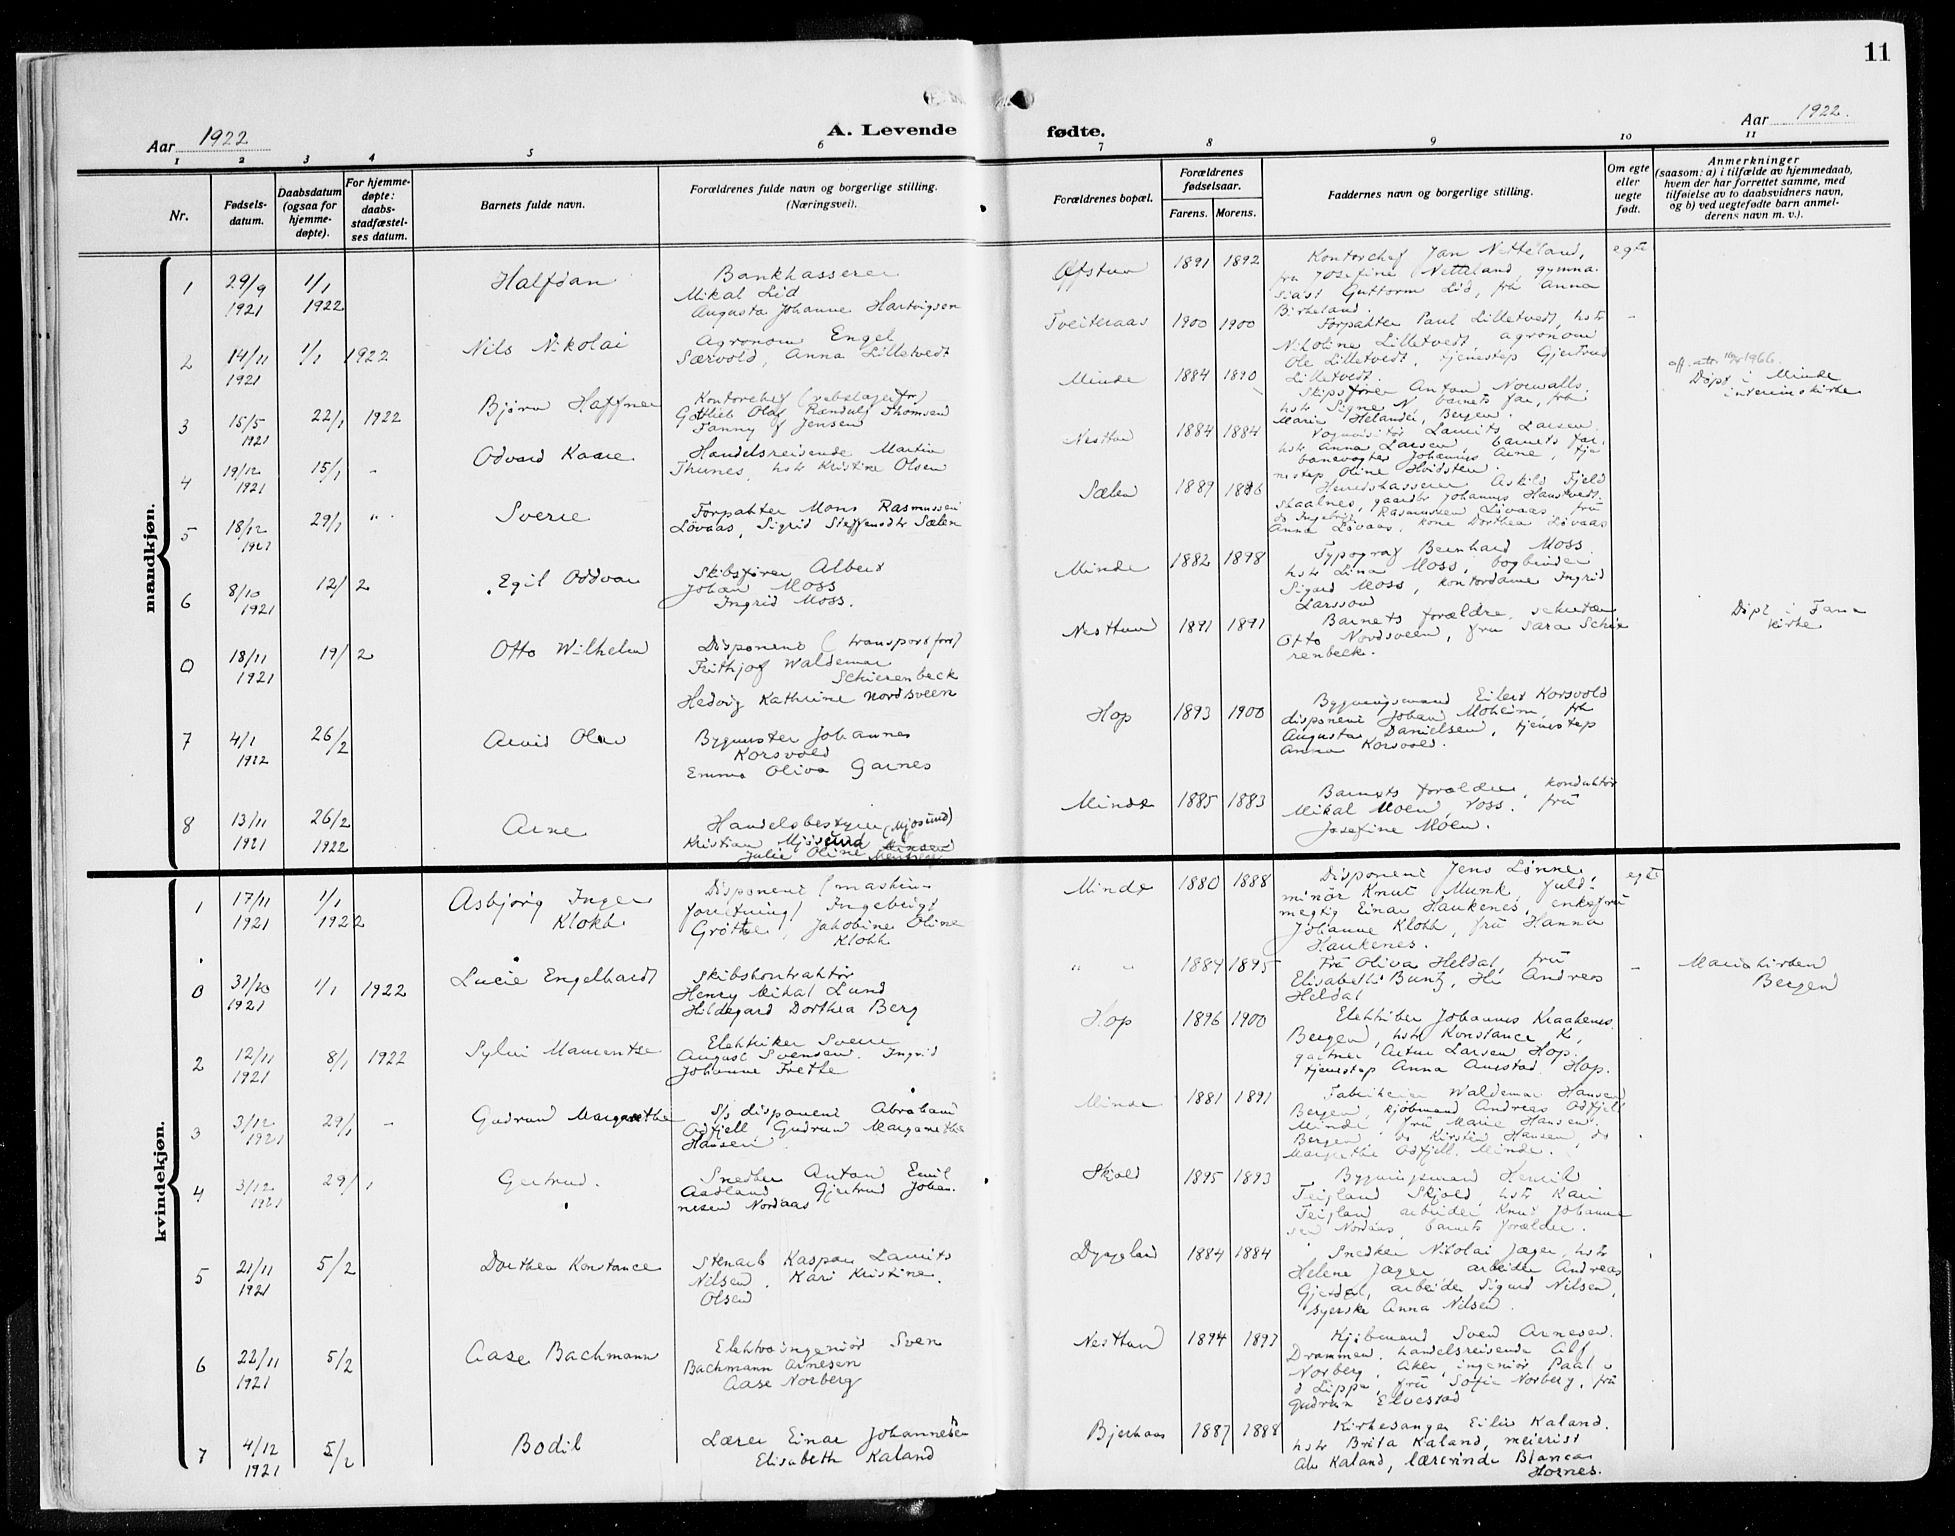 11
Aar 1922
A. Levende fødte.
Aar 1922.
1 2 3 4 5 6 7 8 9 10 11
Nr.
Fødsels-
datum.
Daabsdatum
(ogsaa for
hjemme-
døpte).
For hjemme-
døpte:
daabs-
stadfæstel-
ses datum.
Barnets fulde navn.
Forældrenes fulde navn og borgerlige stilling.
(Næringsvei).
Forældrenes bopæl.
Forældrenes
fødselsaar.
Farens. Morens.
Faddernes navn og borgerlige stilling.
Om egte
eller
uegte
født.
Anmerkninger
(saasom: a) i tilfælde av hjemmedaab,
hvem der har forrettet samme, med
tilføielse av to daabsvidners navn,
og b) ved uegtefødte barn anmel-
derens navn m. v.).
mandkjøn.
1 29/9 1921 1/1 1922 Halfdan
Bankkasserer
Mikal Lid
Augusta Johanne Hartvigsen
Øfstun 1891 1892
Kontorchef Jan Netteland,
fru Josefine Netteland, gymna-
siast Guttorm Lid, frk Anna
Birkeland.
egte
2 14/11 1921 1/1 1922 Nils Nikolai
Agronom Engel
Særvold, Anna Lilletvedt
Tveiteraas 1900 1900
Forpakter Paul Lilletvedt, hstr
Nikoline Lilletvedt, agronom
Ole Lilletvedt, tjenestep Gjertrud
Lilletvedt.
-
3 15/5 1921 22/1 1922 Bjørn Haffner
Kontorchef (rebslagerfor)
Gottlieb Olaf Randulf Thomsen
Fanny f Jensen
Minde 1884 1890
Skipsfører Anton Norwalls
hstr Signe N barnets far, frk
Marie Helander, Bergen.
Døpt i Minde
interimskirke
4 19/12 1921 15/1 - Odvard Kaare
Handelsreisende Martin
Thunes, hstr Kristine Olsen
Nesttun 1884 1884
Vognvisitør Laurits Larsen
hstr Anna Larsen barnets far,
banevogter Johannes Arne, tje
nestep Oline Hvidsten.
5 18/12 1921 29/1 " Sverre
Forpakter Mons Rasmussen
Løvaas, Sigrid Steffensdtr Sælen
Sælen 1889 1886
Herredskasserer Askild Fjeld
skaalnes, gaardbr Johannes Haustvedt
do Ingebrigt Rasmussen Løvaas, fru
Anna Løvaas, kone Dorthea Løvaas
6 8/10 1921 12/2 Egil Oddvar
Skibsfører Albert
Johan Moss
Ingrid Moss.
Minde 1882 1898
Typograf Bernhard Moss
hstr Lina Moss, bogbinder
Sigurd Moss, kontordame Ingrid
Larsson
0 18/11 1921 19/2 Otto Wilhelm
Disponent (transportfor)
Frithjof Waldemar
Schierenbeck
Hedvig Kathrine Nordsveen
Nesttun 1891 1891
Barnets forældre,
Otto Nordsveen, fru Sara Schie
renbeck.
Døpt i Fana
kirke
7 4/1 1922 26/2 Arvid Olav
Bygmester Johannes
Korsvold
Emma Oliva Garnes
Hop 1893 1900
Bygningsmand Eilert Korsvold
disponent Johan Moheim, frk
Augusta Danielsen, tjenestep
Anna Korsvold.
8 13/11 1921 26/2 1922 Arne
Handelsbestyrer (Mjøsund)
Kristian Mjøsund
Julie Oline
Minde 1885 1883
Barnets forældre, konduktør
Mikal Moen, Voss. fru
Josefine Moen.
kvindekjøn.
1 17/11 1921 1/1 1922 Asbjørg Inger
Klokk
Disponent (maskin-
foretning) Ingebrigt
Grøtte, Jakobine Oline
Klokk
Minde 1880 1888
Disponent Jens Lønne,
minør Knut Munk, fuld-
megtig Einar Haukenes, enkefru
Johanne Klokk, fru Hanna
Haukenes.
egte
0 31/10 1921 1/1 1922 Lucie Engelhardt
Skibskontraktør
Henry Mikal Lund
Hildegard Dorthea Berg
" " 1884 1895
Fru Oliva Heldal, fru
Elisabeth Buntz, Hr Andreas
Heldal
-
Mariakirken
Bergen
2 12/11 1921 8/1 1922 Sylvi Mauentse
Elektriker Sverre
August Svensen. Ingrid
Johanne Frette
Hop 1896 1900
Elektriker Johannes Kraakenes.
Bergen, hstr Konstance K,
gartner Artur Larsen Hop.
tjenestep Anna Aurstad Hop.
3 3/12 1921 29/1 - Gudrun Margrethe
S/s disponent Abraham
Odfjell Gudrun Margarethe
Hansen
Minde 1881 1891
Fabrikeier Waldemar Hansen
Bergen, kjøbmand Andreas Odfjell
Minde fru Marie Hansen
Bergen, do Kirsten Hansen, do
Margrethe Odfjell. Minde.
4 3/12 1921 29/1 Gertrud.
Snedker Anton Emil
Aadland Gjertrud Johan-
nesen Nordaas
Skjold 1895 1893
Bygningsmand Henrik
Teigland Skjold, hstr Kari
Teigland arbeider Knut Johanne
sen Nordaas, barnets forælder.
5 21/11 1921 5/2 Dorthea Konstance
Stenarb Kaspar Laurits
Nilsen, Kari Kristine
Olsen
Dyngland 1884 1884
Snedker Nikolai Jæger, hstr
Helene Jæger arbeider Andreas
Gjerdal, arbeider Sigurd Nilsen,
syerske Anna Nilsen.
6 22/11 1921 5/2 Aase Bachmann
Elektroingeniør Sven
Bachmann Arnesen
Aase Norberg
Nesttun 1894 1897
Kjøbmand Svend Arnesen.
Drammen, handelsreisende Alf
Norberg, Aker, ingeniør Paal
d Lippe, fru Sofie Norberg, fru
Gudrun Elvestad
7 4/12 1921 5/2 Bodil
Lærer Einar Johannesen
Elisabeth Kaland
Bjerkaas 1887 1888
Kirkesanger Eiliv Kaland.
hstr Brita Kaland, meierist
Ole Kaland, lærerinde Blanca
Hornes.